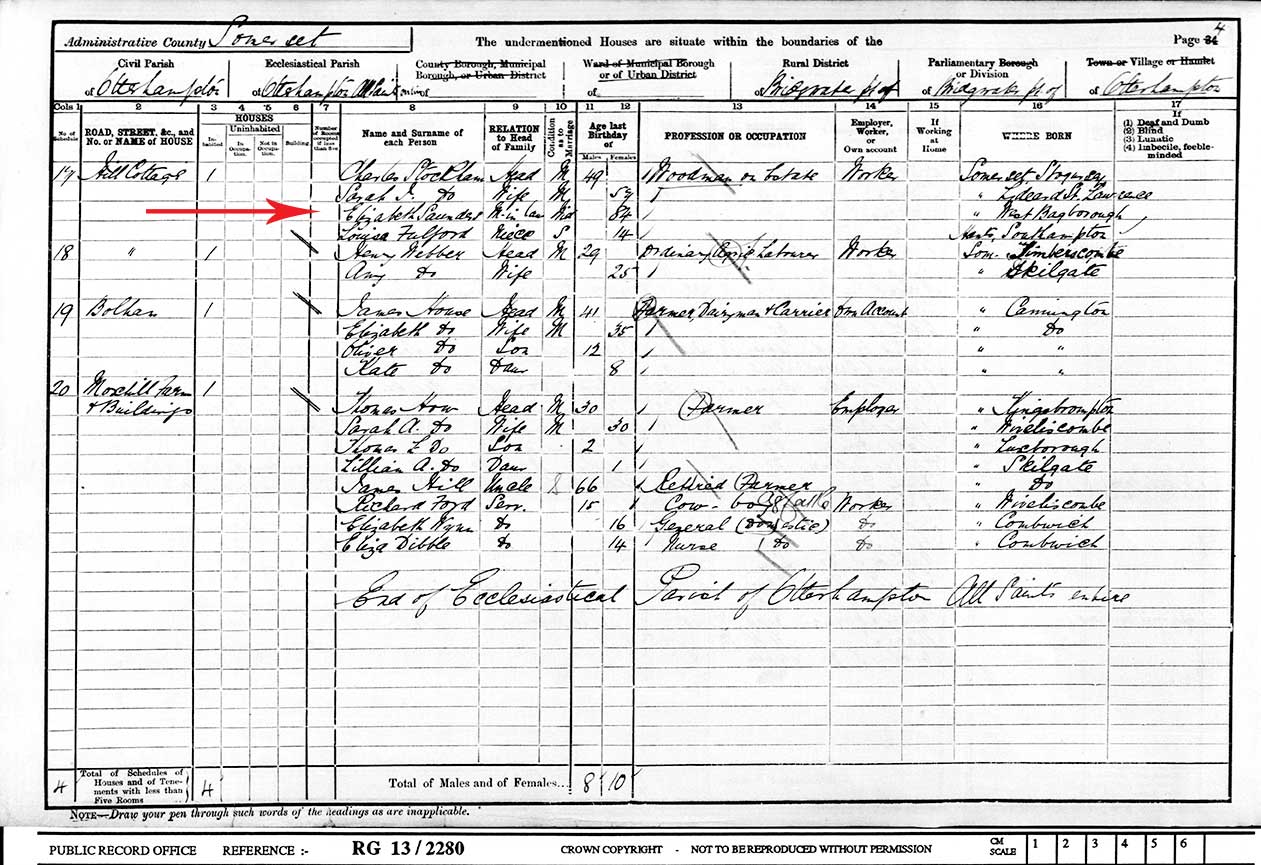 Administrative County Somerset The undermentioned Houses are situate within the boundaries of the Page 34 4
Civil Parish Ecclesiastical Parish County Borough, Municipal Borough, or Urban District Ward of Municipal Borough or of Urban District Rural District Parliamentary Borough or Division Town or Village or Hamlet
of Otterhampton of Otterhampton All Saints entire of of Bridgwater pt of of Bridgwater pt of of Otterhampton
Cols 1 2 3 4 5 6 7 8 9 10 11 12 13 14 15 16 17
No. of Schedule ROAD, STREET, &c., and No. or NAME of HOUSE HOUSES Inhabited Uninhabited In Occupation. Not in Occupation. Building Number of Rooms occupied if less than five Name and Surname of each Person RELATION to Head of Family Condition as to Marriage Age last Birthday of Males Females PROFESSION OR OCCUPATION Employer, Worker, or Own account If Working at Home WHERE BORN If (1) Deaf and Dumb (2) Blind (3) Lunatic (4) Imbecile, feeble-minded
17 Hill Cottage 1 Charles Stockham Head M 49 Woodman on Estate Worker Somerset Stogursey
Sarah J. Do Wife M 57 " Lydeard St. Lawrence
Elizabeth Saunders M-in-law Wid 84 " West Bagborough
Louisa Fulford Niece S 14 Hants, Southampton
18 " 1 Henry Webber Head M 29 Ordinary Agric Labourer Worker Som. Timberscombe
Amy Do Wife 25 " Skilgate
19 Bolham 1 James House Head M 41 Farmer, Dairyman & Carrier Own Account " Cannington
Elizabeth Do Wife M 35 " Do
Oliver Do Son 12 " "
Kate Do Daur 8 " "
20 Moxhill Farm & Buildings 1 Thomas How Head M 30 Farmer Employer " Kingsbrompton
Sarah A. Do Wife M 30 " Wiveliscombe
Thomas L Do Son 2 " Luxborough
Lillian A. Do Daur 1 " Skilgate
James Hill Uncle S 66 Retired Farmer " Do
Richard Ford Serv. 15 Cow-boy Cattle Worker " Wiveliscombe
Elizabeth Wynn Do 16 General (Domestic) Do " Combwich
Eliza Dibble Do 14 Nurse Do Do " Combwich
End of Ecclesiastical Parish of Otterhampton All Saints entire
4 Total of Schedules of Houses and of Tenements with less than Five Rooms 4 Total of Males and of Females... 8 10
NOTE—Draw your pen through such words of the headings as are inapplicable.
PUBLIC RECORD OFFICE REFERENCE :- RG 13 / 2280 CROWN COPYRIGHT - NOT TO BE REPRODUCED WITHOUT PERMISSION CM SCALE 1 2 3 4 5 6